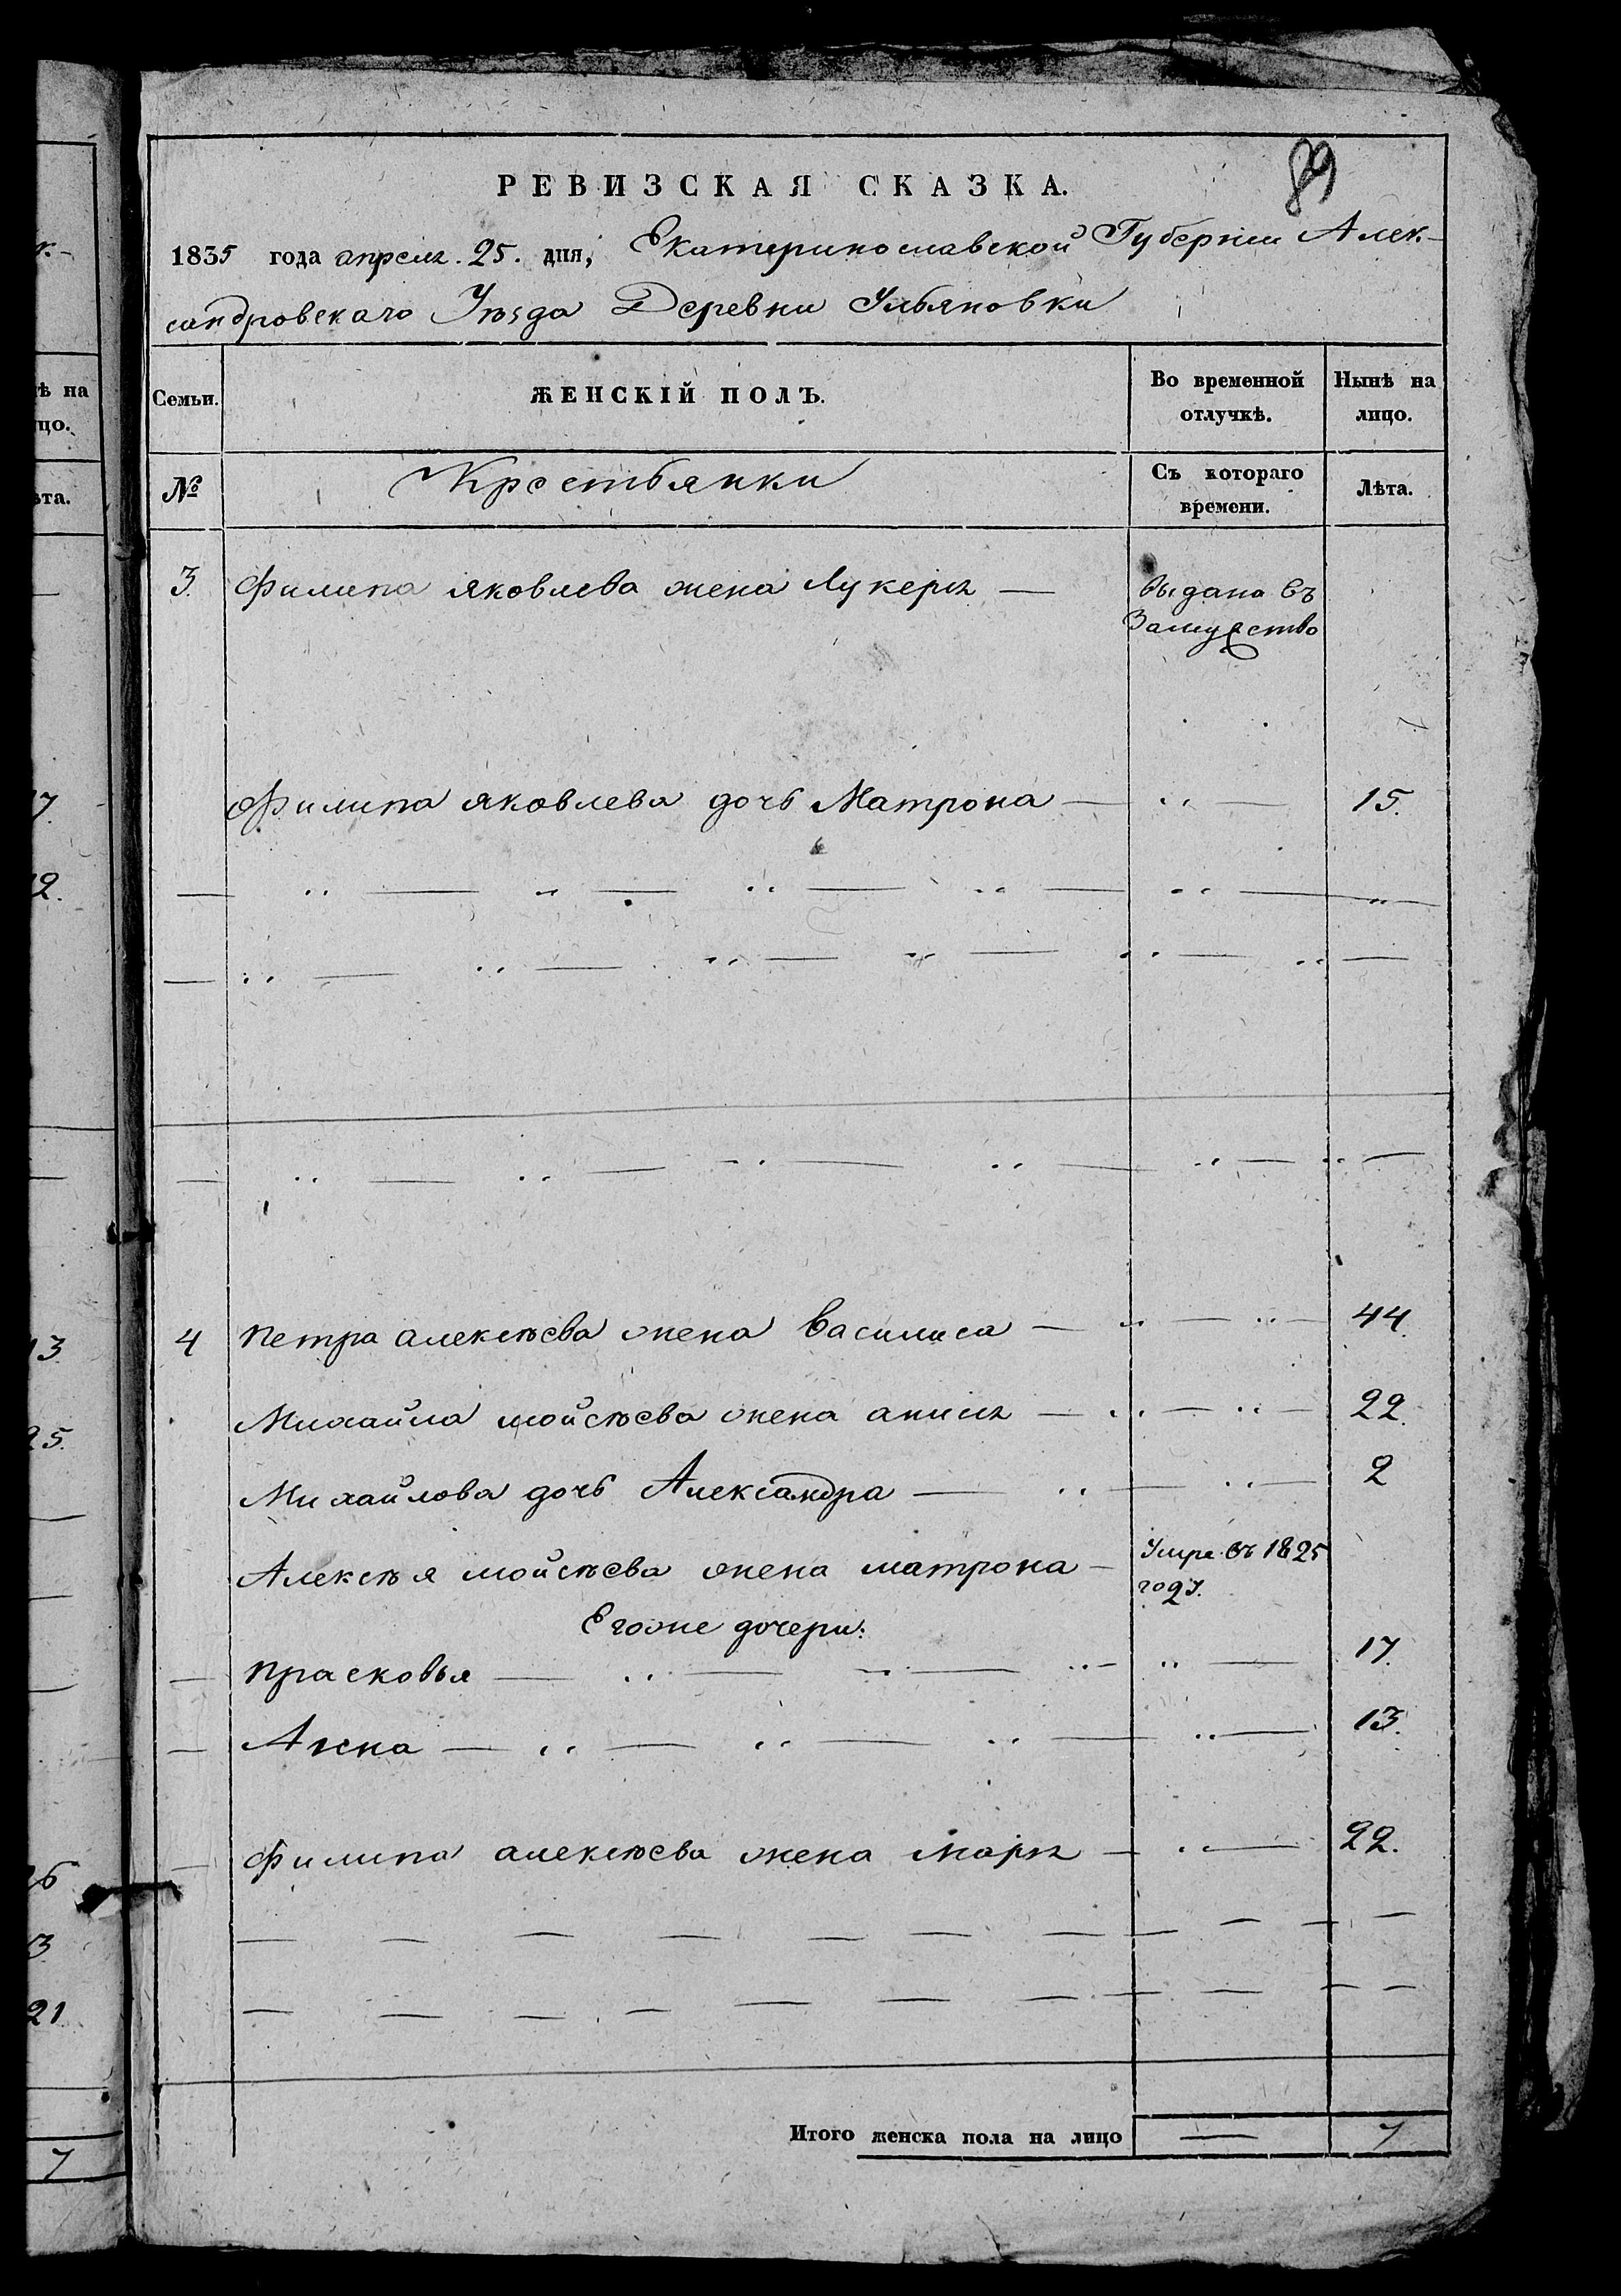 89
РЕВИЗСКАЯ СКАЗКА.
1835 года апреля. 25. дня, Екатеринославской Губернии Алек-
сандровскаго Уѣзда Деревни Ульяновки
Семьи.
ЖЕНСКІЙ ПОЛЪ.
Во временной
отлучкѣ.
Нынѣ на
лицо.
№
Крестьянки
Съ котораго
времени.
Лѣта.
3. Филипа яковлева жена Лукеря — выдана въ
Замужство
Филипа яковлева дочь Матрона — 15.
4 Петра алексѣева жена Василиса — 44.
Михайла мойсѣева жена анися — 22.
Михайлова дочь Александра — 2
Алексѣя мойсѣева жена матрона — Умре въ 1825
году.
Егоже дочери:
Прасковья — 17.
Анна — 13.
Филипа алексѣева жена маря — 22.
Итого женска пола на лицо — 7
ѣ на
цо.
ѣта.
7.
2.
13.
25.
26
3
21
7